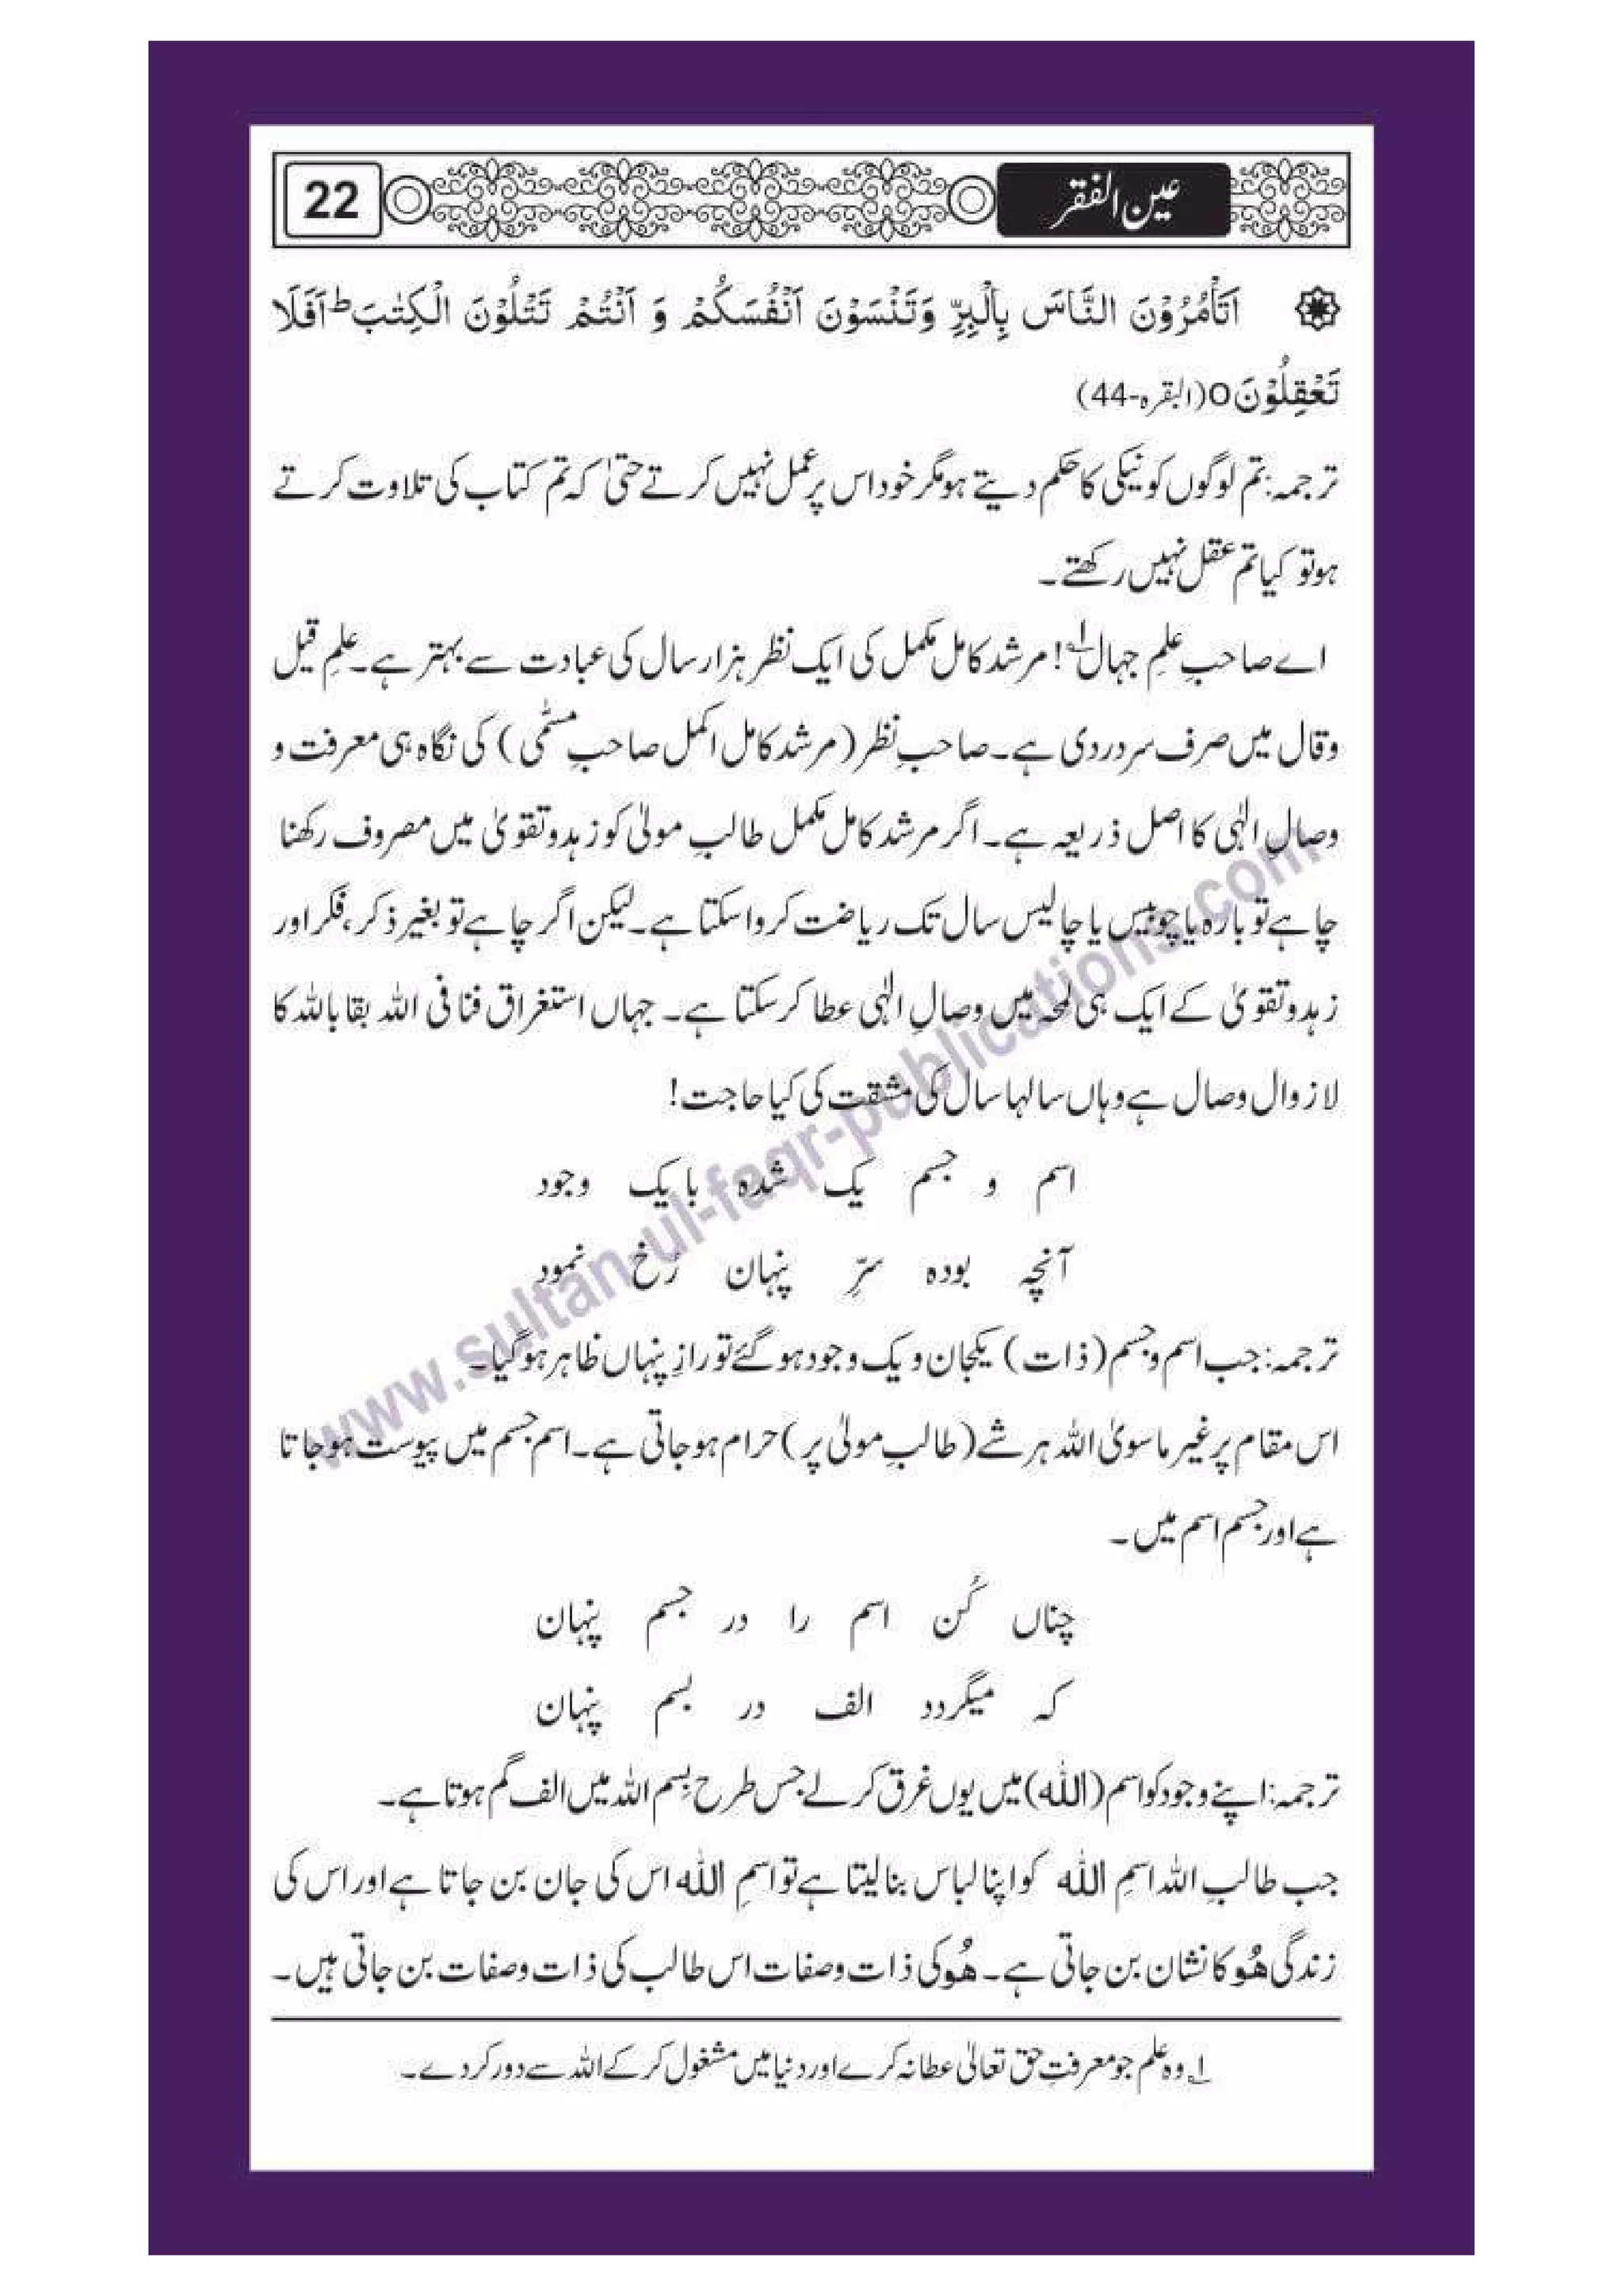 عین الفقر
22
اَتَاْمُرُوْنَ النَّاسَ بِالْبِرِّ وَتَنْسَوْنَ اَنْفُسَكُمْ وَ اَنْتُمْ تَتْلُوْنَ الْكِتٰبَ ط اَفَلَا
تَعْقِلُوْنَ o (البقرہ-44)
ترجمہ: تم لوگوں کو نیکی کا حکم دیتے ہو مگر خود اس پر عمل نہیں کرتے حتیٰ کہ تم کتاب کی تلاوت کرتے
ہو تو کیا تم عقل نہیں رکھتے۔
اے صاحبِ علمِ جہال۱! مرشد کامل مکمل کی ایک نظر ہزار سال کی عبادت سے بہتر ہے۔ علمِ قیل
و قال میں صرف سر دردی ہے۔ صاحبِ نظر (مرشد کامل اکمل صاحبِ مسمّٰی) کی نگاہ ہی معرفت و
وصالِ الٰہی کا اصل ذریعہ ہے۔ اگر مرشد کامل مکمل طالبِ مولیٰ کو زہد و تقویٰ میں مصروف رکھنا
چاہے تو بارہ یا چوبیس یا چالیس سال تک ریاضت کروا سکتا ہے۔ لیکن اگر چاہے تو بغیر ذکر، فکر اور
زہد و تقویٰ کے ایک ہی لمحہ میں وصالِ الٰہی عطا کر سکتا ہے۔ جہاں استغراق فنا فی اللہ بقا باللہ کا
لازوال وصال ہے وہاں سالہا سال کی مشقت کی کیا حاجت!
اسم و جسم یک شدہ با یک وجود
آنچہ بودہ سرِّ پنہان رُخ نمود
ترجمہ: جب اسم و جسم (ذات) یکجان و یک وجود ہو گئے تو رازِ پنہاں ظاہر ہو گیا۔
اس مقام پر غیر ماسویٰ اللہ ہر شے (طالبِ مولیٰ پر) حرام ہو جاتی ہے۔ اسم جسم میں پیوست ہو جاتا
ہے اور جسم اسم میں۔
چناں کُن اسم را در جسم پنہان
کہ میگردد الف در بسم پنہان
ترجمہ: اپنے وجود کو اسم (اللہ) میں یوں غرق کر لے جس طرح بِسم اللہ میں الف گم ہوتا ہے۔
جب طالبِ اللہ اسمِ اللہ کو اپنا لباس بنا لیتا ہے تو اسمِ اللہ اس کی جان بن جاتا ہے اور اس کی
زندگی ھُو کا نشان بن جاتی ہے۔ ھُو کی ذات و صفات اس طالب کی ذات و صفات بن جاتی ہیں۔
۱ وہ علم جو معرفتِ حق تعالیٰ عطا نہ کرے اور دنیا میں مشغول کر کے اللہ سے دور کر دے۔
www.sultan-ul-faqr-publications.com